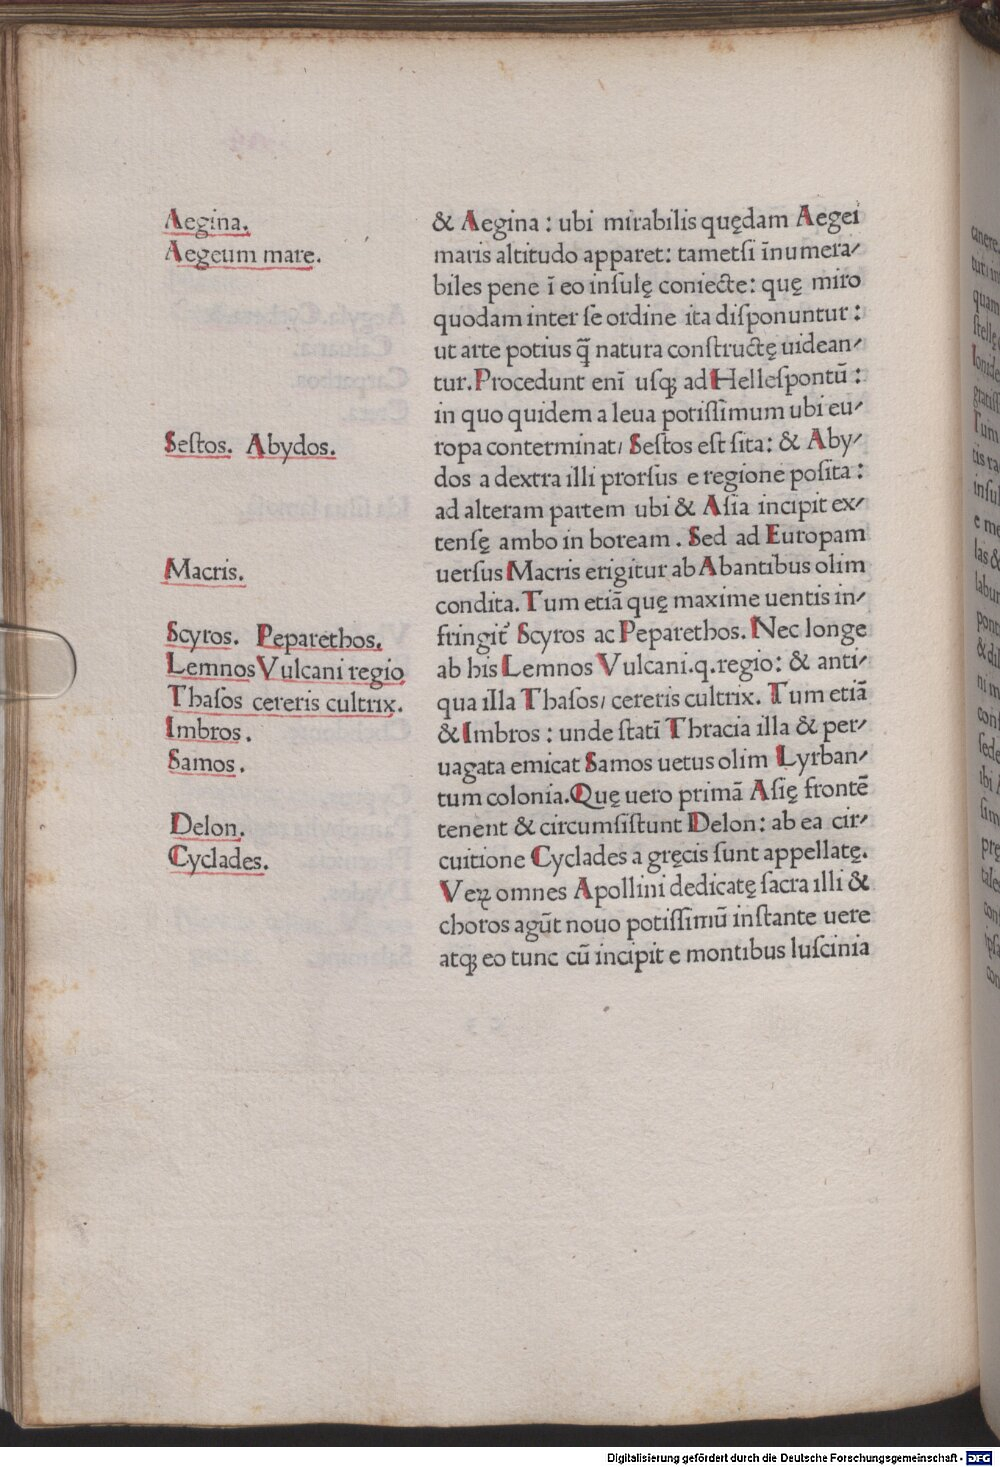 Aegina.
Aegeum mare.
Seſtos. Abydos.
Macris.
Scyros. Peparethos.
Lemnos Vulcani regio
Thaſos cereris cultrix.
Imbros.
Samos.
Delon.
Cyclades.
& Aegina : ubi mirabilis quędam Aegei
maris altitudo apparet: tametſi īnumera/
biles pene ī eo inſulę coniecte: quę miro
quodam inter ſe ordine ita diſponuntur :
ut arte potius q̄ natura conſtructę uidean/
tur. Procedunt enī uſqꝫ ad Helleſpontū :
in quo quidem a leua potiſſimum ubi eu/
ropa conterminat/ Seſtos eſt ſita: & Aby/
dos a dextra illi prorſus e regione poſita :
ad alteram partem ubi & Aſia incipit ex/
tenſę ambo in boream . Sed ad Europam
uerſus Macris erigitur ab Abantibus olim
condita. Tum etiā quę maxime uentis in/
fringit̄ Scyros ac Peparethos. Nec longe
ab his Lemnos Vulcani.q.regio: & anti/
qua illa Thaſos/ cereris cultrix. Tum etiā
& Imbros : unde ſtatī Thracia illa & per/
uagata emicat Samos uetus olim Lyrban/
tum colonia. Quę uero primā Aſię frontē
tenent & circumſiſtunt Delon: ab ea cir/
cuitione Cyclades a gręcis ſunt appellatę.
Veꝝ omnes Apollini dedicatę ſacra illi &
choros agūt nouo potiſſimū inſtante uere
atqꝫ eo tunc cū incipit e montibus luſcinia
Digitalisierung gefördert durch die Deutsche Forschungsgemeinschaft - DFG